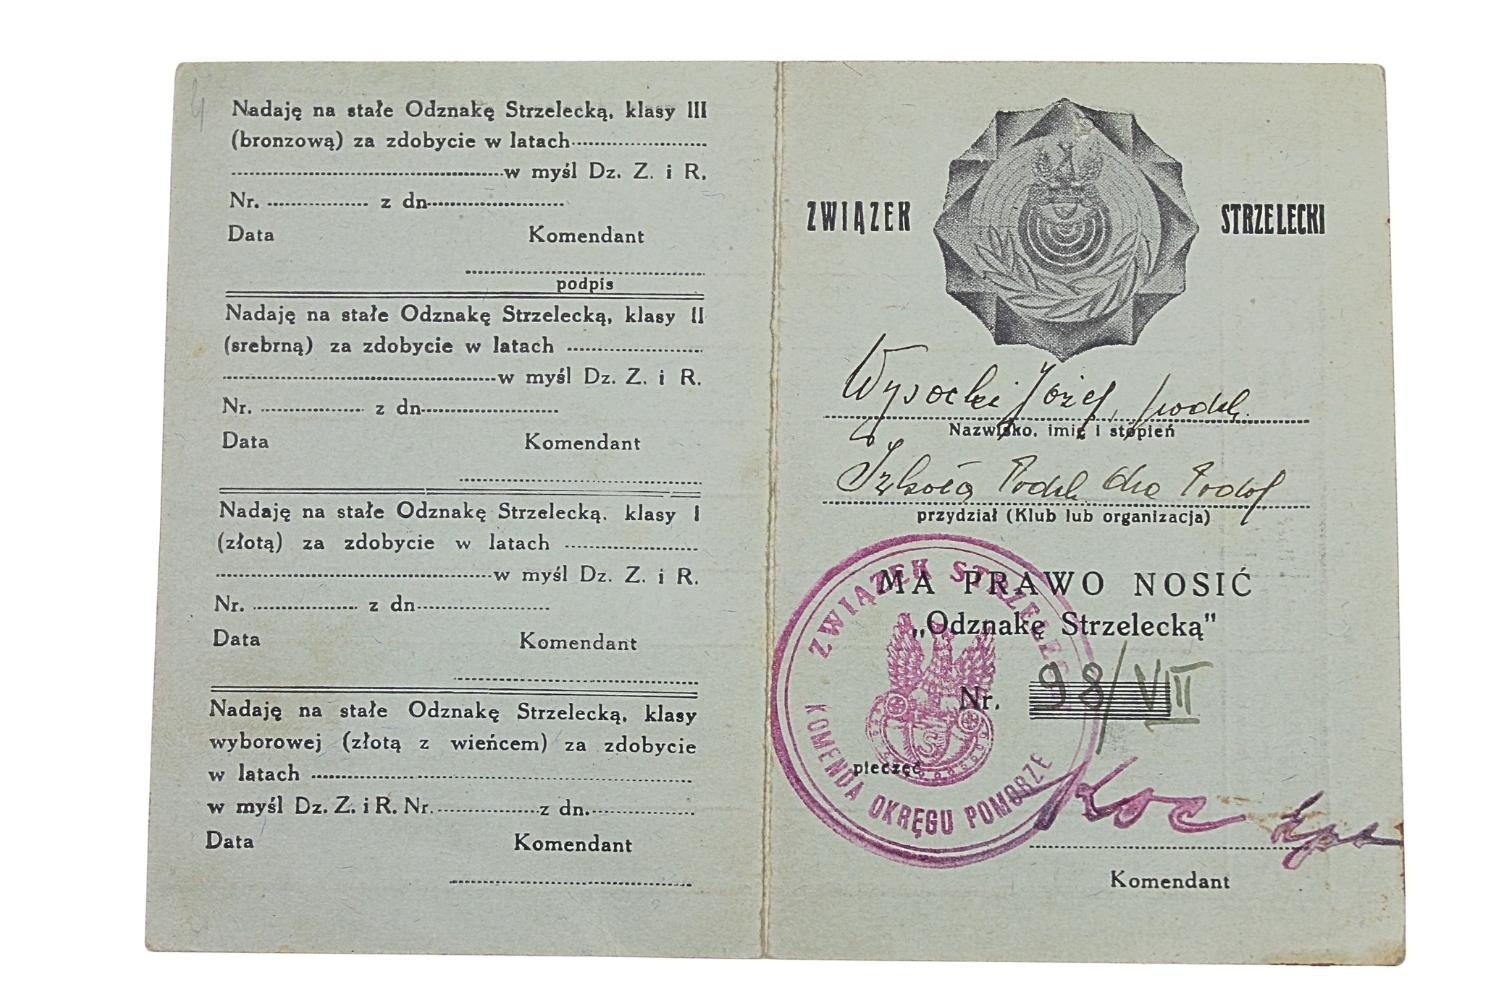 Nadaję na stałe Odznakę Strzelecką, klasy III
(bronzową) za zdobycie w latach
w myśl Dz. Z. i R.
Nr. z dn
Data Komendant
podpis
Nadaję na stałe Odznakę Strzelecką, klasy II
(srebrną) za zdobycie w latach
w myśl Dz. Z. i R.
Nr. z dn
Data Komendant
Nadaję na stałe Odznakę Strzelecką, klasy I
(złotą) za zdobycie w latach
w myśl Dz. Z. i R.
Nr. z dn
Data Komendant
Nadaję na stałe Odznakę Strzelecką, klasy
wyborowej (złotą z wieńcem) za zdobycie
w latach
w myśl Dz. Z. i R. Nr. z dn.
Data Komendant
ZWIĄZEK STRZELECKI
Wysocki Józef, podch.
Nazwisko, imię i stopień
Szkoła Podch. dla Podof
przydział (Klub lub organizacja)
MA PRAWO NOSIĆ
„Odznakę Strzelecką"
Nr. 98/VIII
pieczęć
ZWIĄZEK STRZELEC
KOMENDA OKRĘGU POMORZE
Koc
Komendant